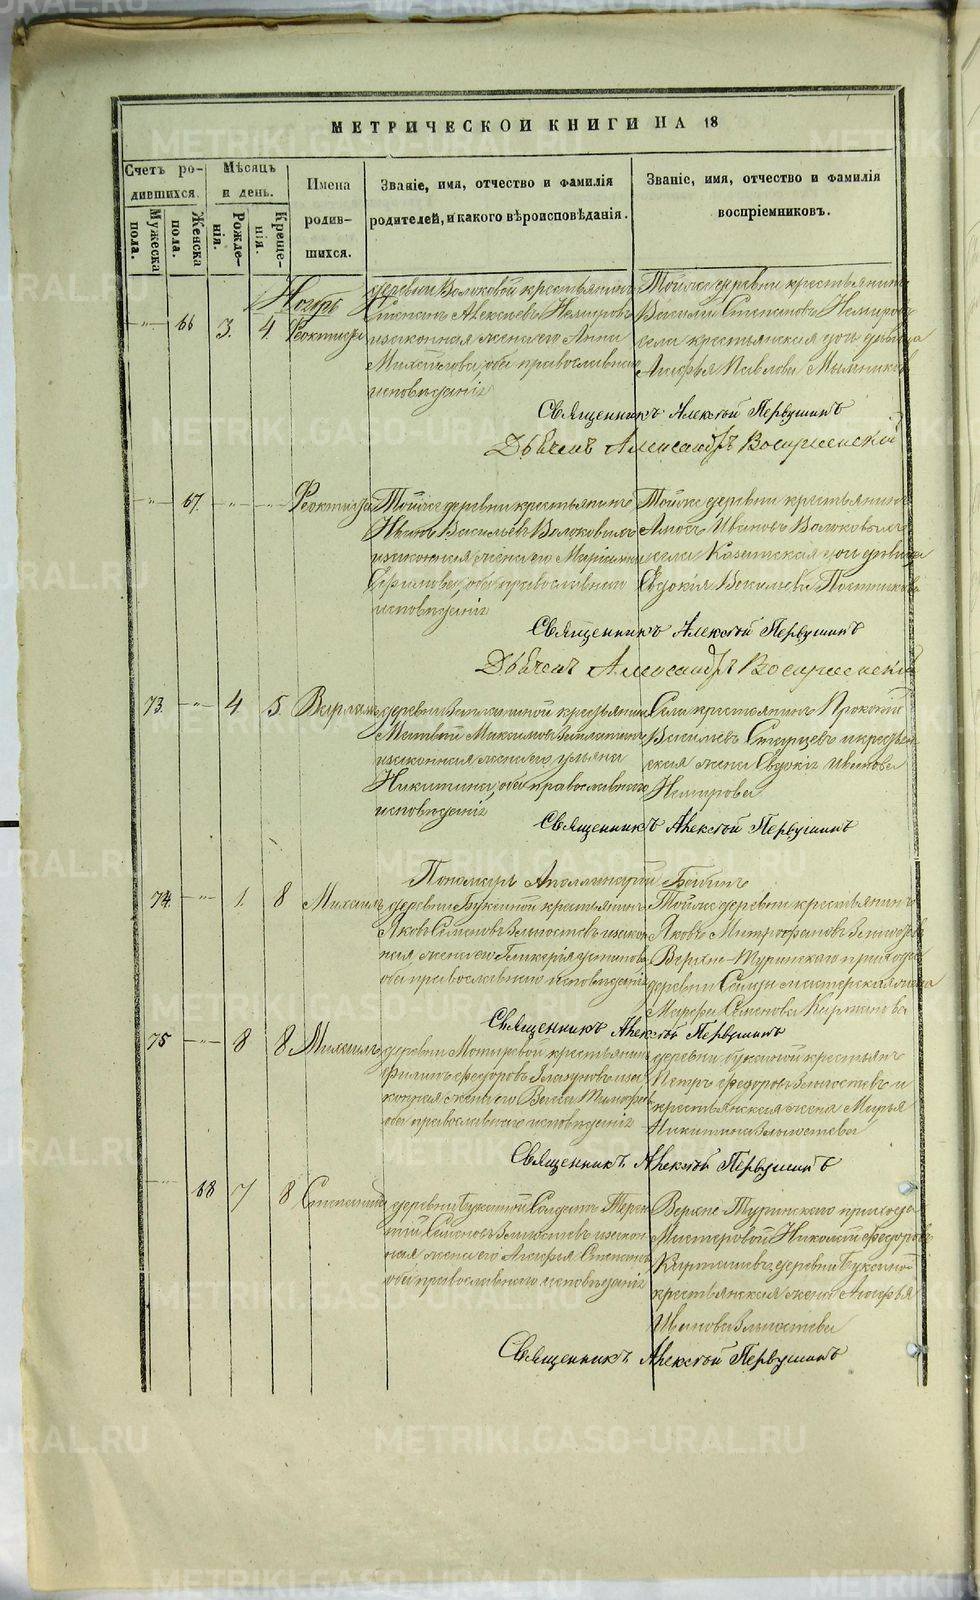 МЕТРИЧЕСКОЙ КНИГИ НА 18
Счетъ ро-
дившихся.
Мѣсяцъ
и день.
Имена
родив-
шихся.
Званіе, имя, отчество и фамилія
родителей, и какого вѣроисповѣданія.
Званіе, имя, отчество и фамилія
воспріемниковъ.
Мужеска
пола.
Женска
пола.
Рожде-
нія.
Креще-
нія.
Ноябрь
66 3. 4. Феоктиста
деревни Волоковой крестьянинъ
Степанъ Алексѣевъ Немировъ
и законная жена его Анна
Михайлова, оба православнаго
исповѣданія
Тойже деревни крестьянинъ
Василій Степановъ Немировъ
села крестьянская дочь дѣвица
Агафья Павлова
Священникъ Алексѣй Первушинъ
Дьяконъ Александръ Воскресенской
67. Феоктиста
Тойже деревни крестьянинъ
Иванъ Васильевъ Волоковыхъ
и законная жена его
оба православнаго
исповѣданія
Тойже деревни крестьянинъ
Амосъ Ивановъ Волоковыхъ
села дочь дѣвица
Евдокія Васильева Постникова
Священникъ Алексѣй Первушинъ
Дьяконъ Александръ Воскресенской
73. 4 5.
деревни крестьянинъ
Матвѣй Максимовъ
и законная жена его Ульяна
Никитина, оба православнаго
исповѣданія
Села крестьянинъ Прокопій
Васильевъ Старцевъ и крестьян
ская жена Евдокія Иванова
Немирова
Священникъ Алексѣй Первушинъ
Пономарь Аполлинарій Бабинъ
74. 1. 8 Михаилъ
деревни Букиной крестьянинъ
Яковъ Семеновъ и закон
ная жена его Гликерія
оба православнаго исповѣданія
Тойже деревни крестьянинъ
Яковъ Митрофановъ
Верхне-Туринскаго прихода
деревни мастерская жена
Марфа Семенова
Священникъ Алексѣй Первушинъ
75 8 8 Михаилъ
деревни крестьянинъ
Филипъ Федоровъ Глазуновъ и за
конная жена его Васса
оба православнаго исповѣданія
деревни Букиной крестьянинъ
Петръ Федоровъ и
крестьянская жена Марья
Никитина
Священникъ Алексѣй Первушинъ
68 7 8 Степанида
деревни Букиной Солдатъ Терен
тій Семеновъ и закон
ная жена его Агафья Степанова
оба православнаго исповѣданія
Верхне Туринскаго прихода
Мастеровой Николай Федоровъ
деревни Букиной
крестьянская жена Агафья
Иванова
Священникъ Алексѣй Первушинъ
METRIKI.GASO-URAL.RU